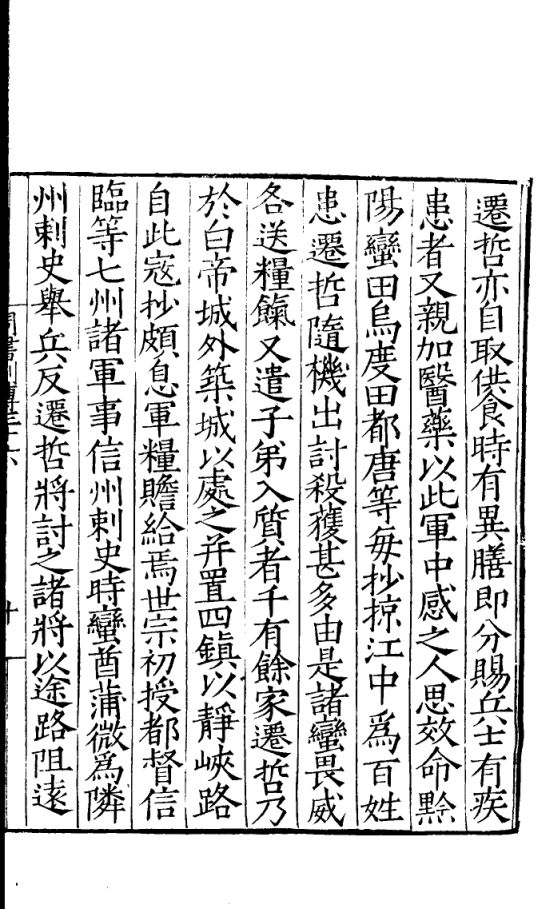 遷哲亦自取供食時有異膳即分賜兵士有疾
患者又親加醫藥以此軍中感之人思效命黔
陽蠻田烏度田都唐等每抄掠江中爲百姓
患遷哲隨機出討殺獲甚多由是諸蠻畏威
各送糧餼又遣子弟入質者千有餘家遷哲乃
於白帝城外築城以處之并置四鎮以靜峽路
自此寇抄頗息軍糧贍給焉世宗初授都督信
臨等七州諸軍事信州刺史時蠻酋蒲微爲隣
州刺史舉兵反遷哲將討之諸將以途路阻遠
周書列傳三十六
十